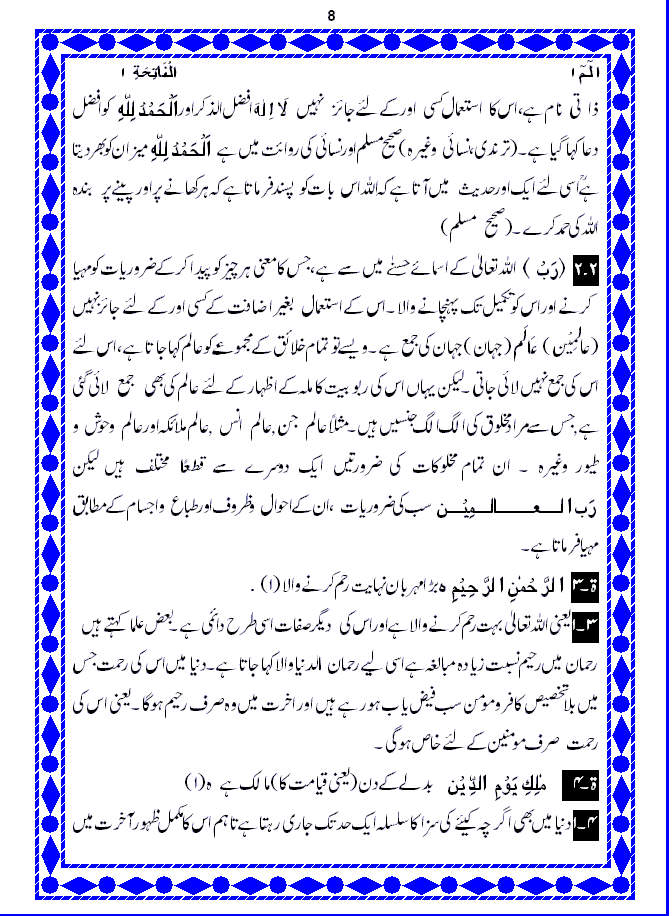 8
الٓمٓ ۱ الْفَاتِحَة ۱
ذاتی نام ہے، اس کا استعمال کسی اور کے لئے جائز نہیں لَا اِلٰہَ افضل الذکر اور اَلْحَمْدُ لِلّٰہِ کو افضل
دعا کہا گیا ہے۔ (ترندی، نسائی وغیرہ) صحیح مسلم اور نسائی کی روائت میں ہے اَلْحَمْدُ لِلّٰہِ میزان کو بھر دیتا
ہے، اسی لئے ایک اور حدیث میں آتا ہے کہ اللہ اس بات کو پسند فرماتا ہے کہ ہر کھانے پر اور پینے پر بندہ
اللہ کی حمد کرے۔ (صحیح مسلم)
۲۔۲ (رَبّ) اللہ تعالیٰ کے اسمائے حسنٰے میں سے ہے، جس کا معنی ہر چیز کو پیدا کر کے ضروریات کو مہیا
کرنے اور اس کو تکمیل تک پہنچانے والا۔ اس کے استعمال بغیر اضافت کے کسی اور کے لئے جائز نہیں
(عَالَمِیْن) عَالَم (جہان) جہان کی جمع ہے۔ ویسے تو تمام خلائق کے مجموعے کو عالم کہا جاتا ہے، اس لئے
اس کی جمع نہیں لائی جاتی۔ لیکن یہاں اس کی ربوبیت کاملہ کے اظہار کے لئے عالم کی بھی جمع لائی گئی
ہے، جس سے مراد مخلوق کی الگ الگ جنسیں ہیں۔ مثلاً عالم جن، عالم انس، عالم ملائکہ اور عالم وحوش و
طیور وغیرہ۔ ان تمام مخلوکات کی ضرورتیں ایک دوسرے سے قطعًا مختلف ہیں لیکن
رَبِ الْعَالَمِیْن سب کی ضروریات، ان کے احوال وظروف اور طباع واجسام کے مطابق
مہیا فرماتا ہے۔
ۃ۔۳ الرَّحْمٰنِ الرَّحِیْمِ ہ بڑا مہربان نہایت رحم کرنے والا (۱)۔
۳۔۱ یعنی اللہ تعالیٰ بہت رحم کرنے والا ہے اور اس کی دیگر صفات اسی طرح دائمی ہے۔ بعض علما کہتے ہیں
رحمان میں رحیم نسبت زیادہ مبالغہ ہے اسی لیے رحمان الدنیا والا کہا جاتا ہے۔ دنیا میں اس کی رحمت جس
میں بلا تخصیص کافر و مومن سب فیض یاب ہو رہے ہیں اور اخرت میں وہ صرف رحیم ہوگا۔ یعنی اس کی
رحمت صرف مومنین کے لئے خاص ہوگی۔
ۃ۔۴ مٰلِكِ يَوْمِ الدِّيْن بدلے کے دن (یعنی قیامت کا) مالک ہے ہ (۱)
۴۔۱ دنیا میں بھی اگر چہ کیئے کی سزا کا سلسلہ ایک حد تک جاری رہتا ہے تاہم اس کا مکمل ظہور آخرت میں